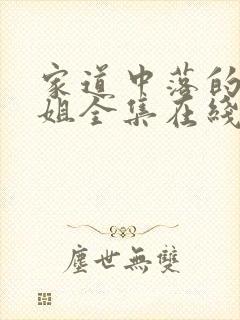 家道中落的
姐全集在綫
塵世無雙